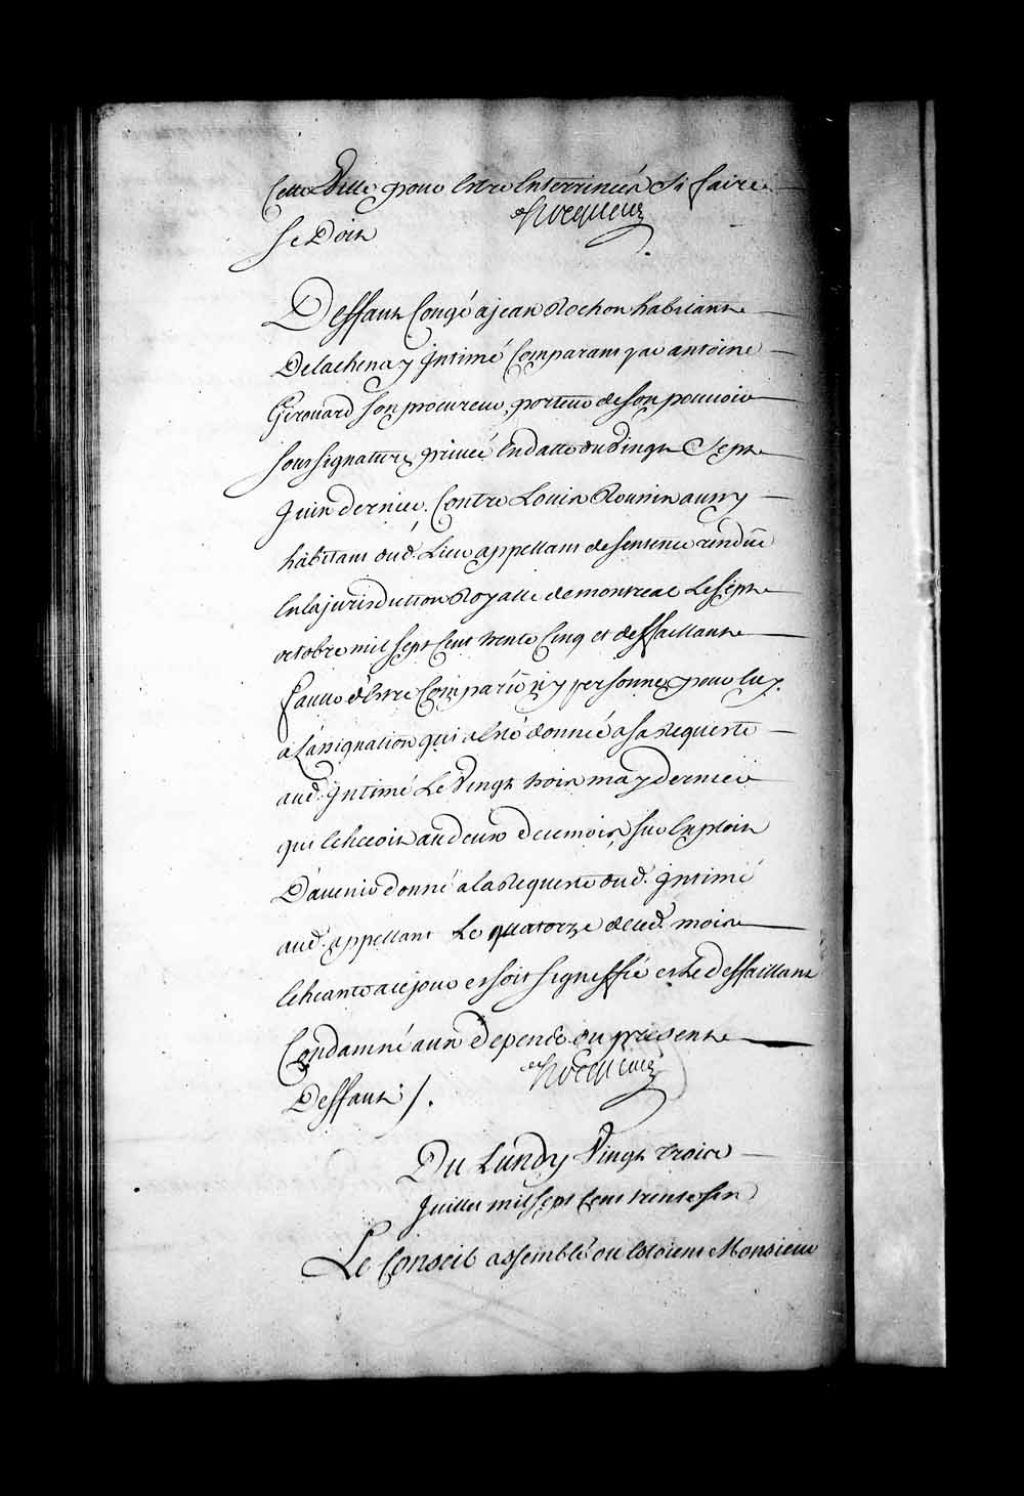 Cette Ville pour Estre Enterrinées Si faire
se Doit
Hocquart
Deffaut Congé a jean Rochon habitant
Delachenay Intimé Comparant par antoine
Gerouard son procureur, porteur de son pouvoir
sous signature privée En datte du Vingt Sept
Juin dernier. Contre Louis Roussin aussy
habitant dud. Lieu appellant de sentence rendüe
En la jurisdiction Royalle de montreal Le sept
octobre mil sept Cent trente Cinq et deffaillant
faute d'Estre Comparu ny personne pour luy
a L'assignation qui a Esté donnée a sa Requeste
aud. Intimé Le Vingt trois may dernier
qui Echeoit au deux de ce mois, sur Exploit
D'avenir donné a la Requeste dud. Intimé
aud. appellant Le quatorze de ced. mois
Echeant a ce jour et soit signeffié et Le deffaillant
Condamné aux depens du present
Deffaut /.
Hocquart
Du Lundy Vingt trois
Juillet mil sept Cent trente six
Le Conseil assemblé ou Estoient Monsieur